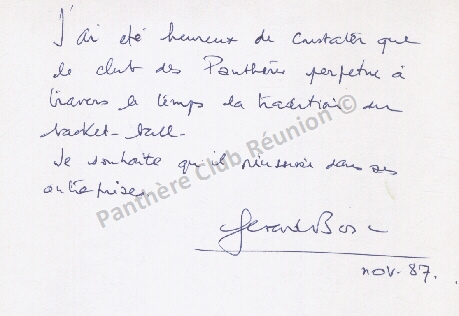 J'ai été heureux de constater que
le club des Panthères perpetue à
travers le temps la tradition du
basket-ball.
Je souhaite qu'il réussisse dans ses
entreprises
Gerard Bosc
nov. 87.
Panthère Club Réunion ©